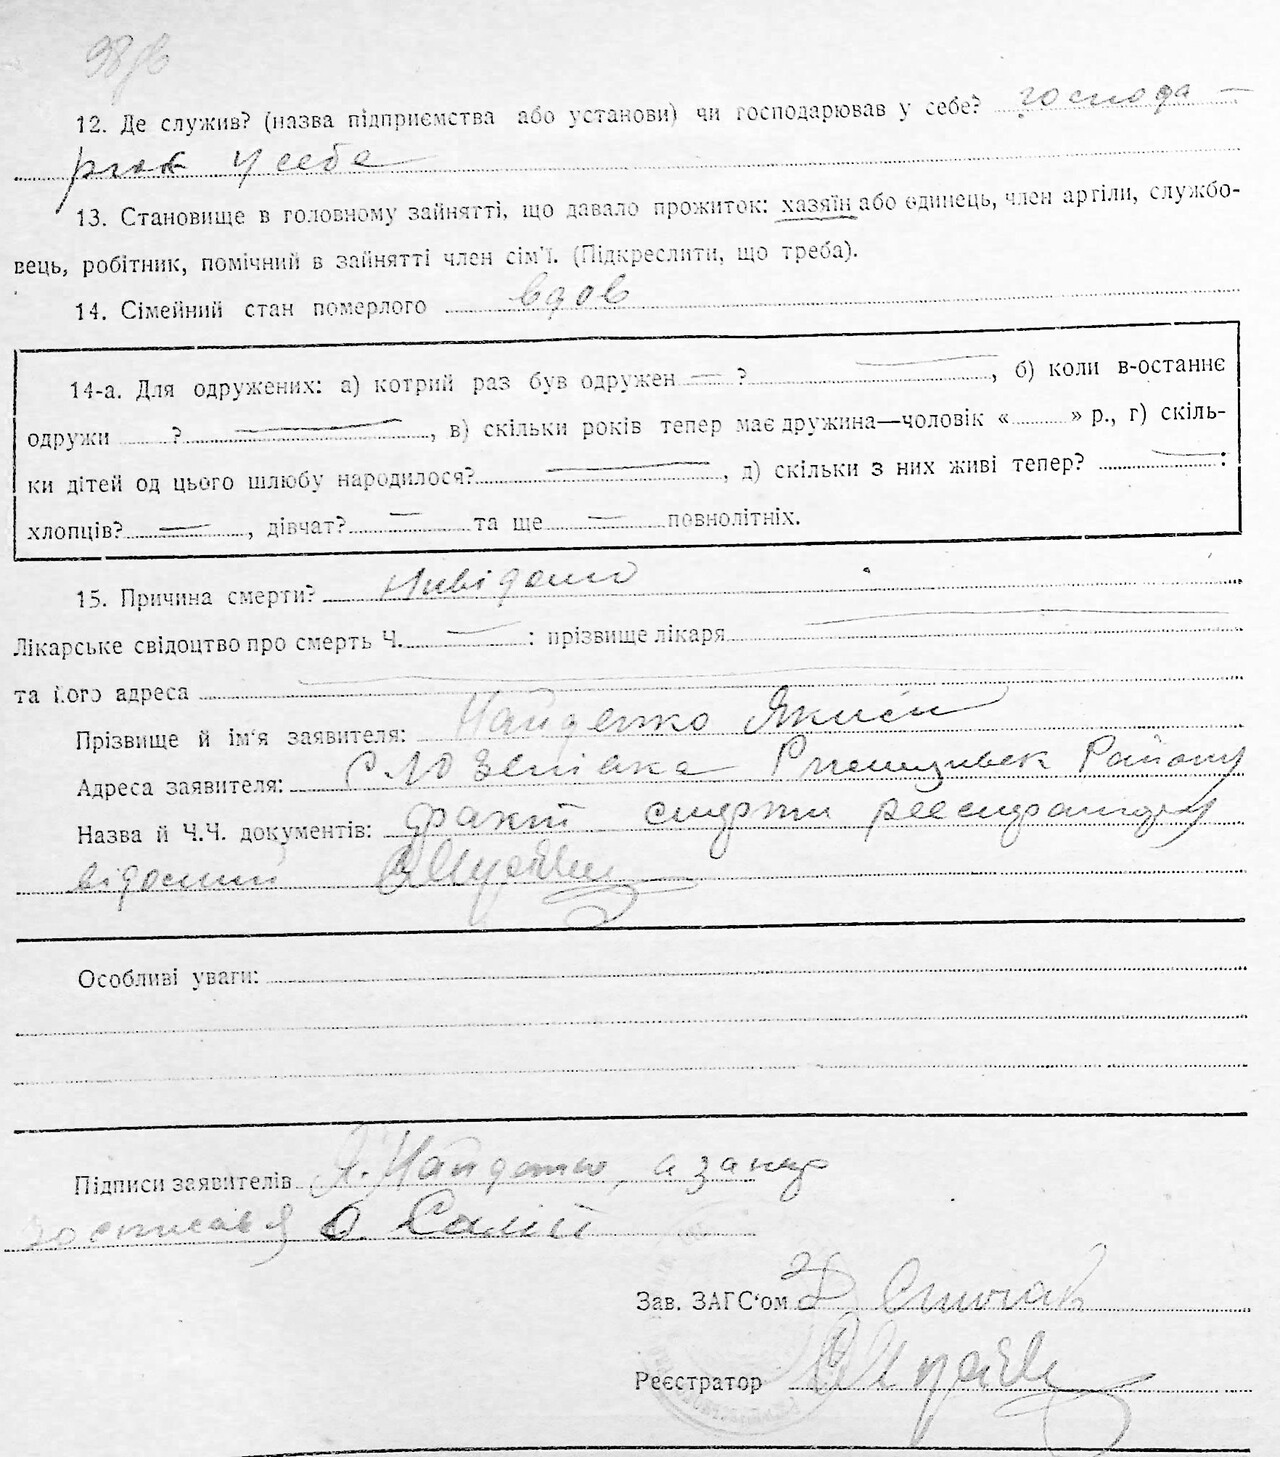 12. Де служив? (назва підприємства або установи) чи господарював у себе? господа-
рював у себе
13. Становище в головному зайнятті, що давало прожиток: хазяїн або одинець, член артіли, службо-
вець, робітник, помічний в зайнятті член сім'ї. (Підкреслити, що треба).
14. Сімейний стан померлого вдов
14-а. Для одружених: а) котрий раз був одружен — ? —, б) коли в-останнє
одружи ? —, в) скільки років тепер має дружина—чоловік « » р., г) скіль-
ки дітей од цього шлюбу народилося? —, д) скільки з них живі тепер? — :
хлопців? —, дівчат? — та ще — повнолітніх.
15. Причина смерти? Нивідомо
Лікарське свідоцтво про смерть Ч. — : прізвище лікаря —
та його адреса —
Прізвище й ім'я заявителя: Найденко Яким
Адреса заявителя: Району
Назва й Ч.Ч. документів: факт смерти реєстратору
відомий
Особливі уваги:
Підписи заявителів Я. Найденко, а за
О. Салій
Зав. ЗАГС'ом Спичак
Реєстратор